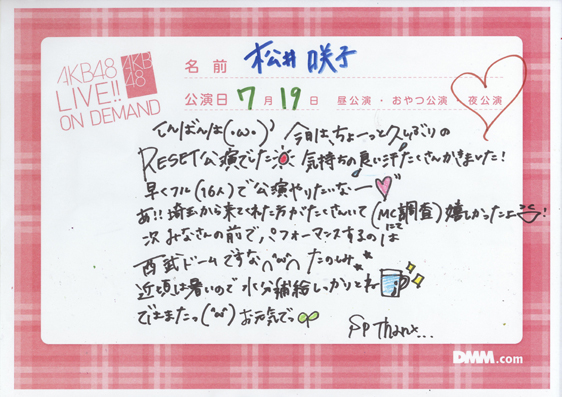 AKB48
LIVE!!
ON DEMAND
AKB
48
名前 松井咲子
公演日 7月19日 昼公演・おやつ公演・夜公演
こんばんは(・ω・)’ 今日は、ちょーっと久しぶりの
RESET公演でした 気持ちの良い汗たくさんかきました!
早くフル(16人)で公演やりたいなー
あ!!埼玉から来てくれた方がたくさんいて(MC調査)嬉しかったよ!
次みなさんの前でパフォーマンスするのは
にて
西武ドームですな∩^ω^∩ たのしみ
近頃は暑いので水分補給しっかりとね
ではまたっ(^ω^) お元気でっ
SP Thanx...
DMM.com